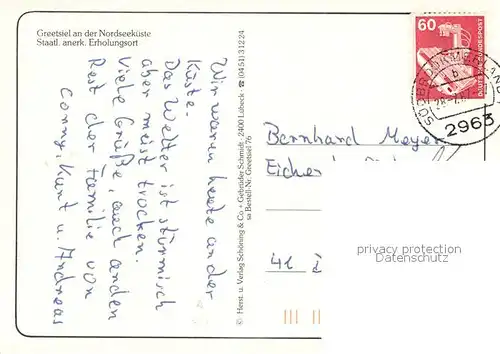 Greetsiel an der Nordseeküste
Staatl. anerk. Erholungsort
Wir waren heute an der
Küste.
Das Wetter ist stürmisch
aber meist trocken.
Viele Grüße, auch an den
Rest der Familie von
Conny, Kurt u. Andreas
© Herst. u. Verlag Schöning & Co + Gebrüder Schmidt · 2400 Lübeck · ☎ (0451) 3 12 24
sa Bestell-Nr. Greetsiel 76
60
DEUTSCHE BUNDESPOST
SÜDBROOKMERLAND
b
2963
Bernhard Meyer
privacy protection
Datenschutz